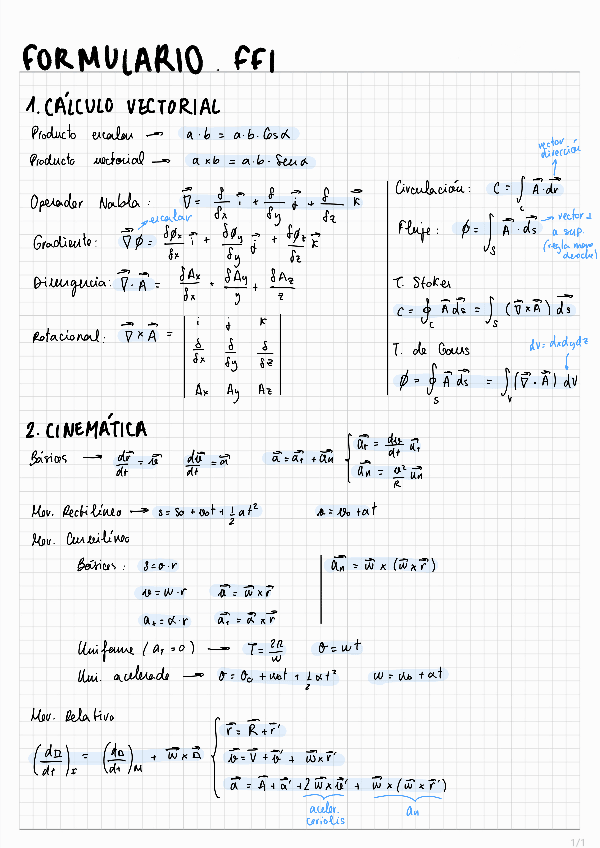 FORMULARIO. FF1
1. CÁLCULO VECTORIAL
Producto escalar → a · b = a · b · Cos α
Producto vectorial → a x b = a · b · Sen α
Operador Nabla: ∇⃗ = δ/δx i⃗ + δ/δy j⃗ + δ/δz k⃗
escalar
Gradiente: ∇⃗ϕ = δϕx/δx i⃗ + δϕy/δy j⃗ + δϕz/δz k⃗
Divergencia: ∇⃗ · A⃗ = δAx/δx + δAy/y + δAz/z
Rotacional: ∇⃗ x A⃗ = | i j k |
| δ/δx δ/δy δ/δz |
| Ax Ay Az |
vector dirección
Circulación: C = ∫c A⃗ · dr⃗
Flujo: ϕ = ∫S A⃗ · ds⃗
vector ⊥
a sup.
(regla mano
derecha)
T. Stokes
C = ∮c A⃗ ds⃗ = ∫S (∇⃗ x A⃗) ds⃗
T. de Gauss
dV = dxdydz
ϕ = ∮S A⃗ ds⃗ = ∫V (∇⃗ · A⃗) dV
2. CINEMÁTICA
Básicos → dr⃗/dt = v⃗ dv⃗/dt = a⃗ a⃗ = a⃗t + a⃗n { a⃗t = dv/dt u⃗t
a⃗n = v²/R u⃗n
Mov. Rectilíneo → s = s0 + v0t + 1/2 at² v = v0 + at
Mov. Curvilíneo
Básicos: s = θ · r | a⃗n = w⃗ x (w⃗ x r⃗)
v = w · r v⃗ = w⃗ x r⃗
at = α · r a⃗t = α⃗ x r⃗
Uniforme (at = 0) → T = 2π/w θ = wt
Uni. acelerado → θ = θ0 + w0t + 1/2 αt² w = w0 + αt
Mov. Relativo
(d□/dt)I = (d□/dt)M + w⃗ x □⃗ { r⃗ = R⃗ + r⃗'
v⃗ = V⃗ + v⃗' + w⃗ x r⃗'
a⃗ = A⃗ + a⃗' + 2 w⃗ x v⃗' + w⃗ x (w⃗ x r⃗')
aceler. an
coriolis
1/1